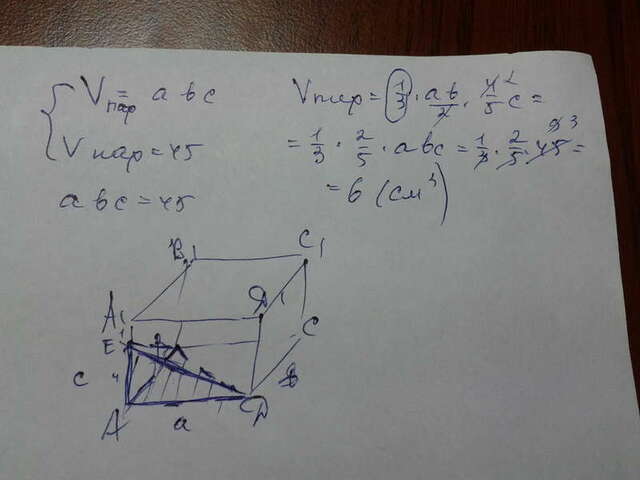 Vпар = a b c
Vпар = 45
a b c = 45
Vпир = 1/3 · ab/2 · 4/5 c =
= 1/3 · 2/5 · abc = 1/3 · 2/5 · 45 =
= 6 (см³)
B1
C1
A1
D1
E
1
C
c
4
B
A
a
D